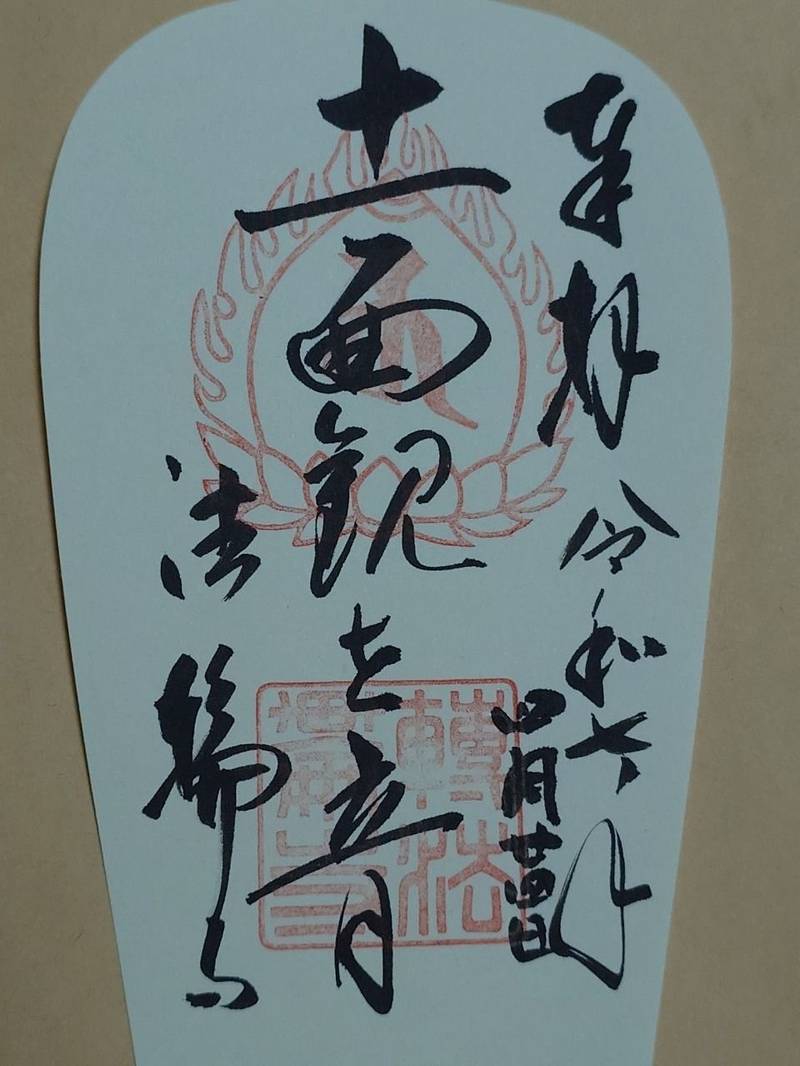 奉拝
令和七年
四月廿四日
十一面観世音
法輪寺